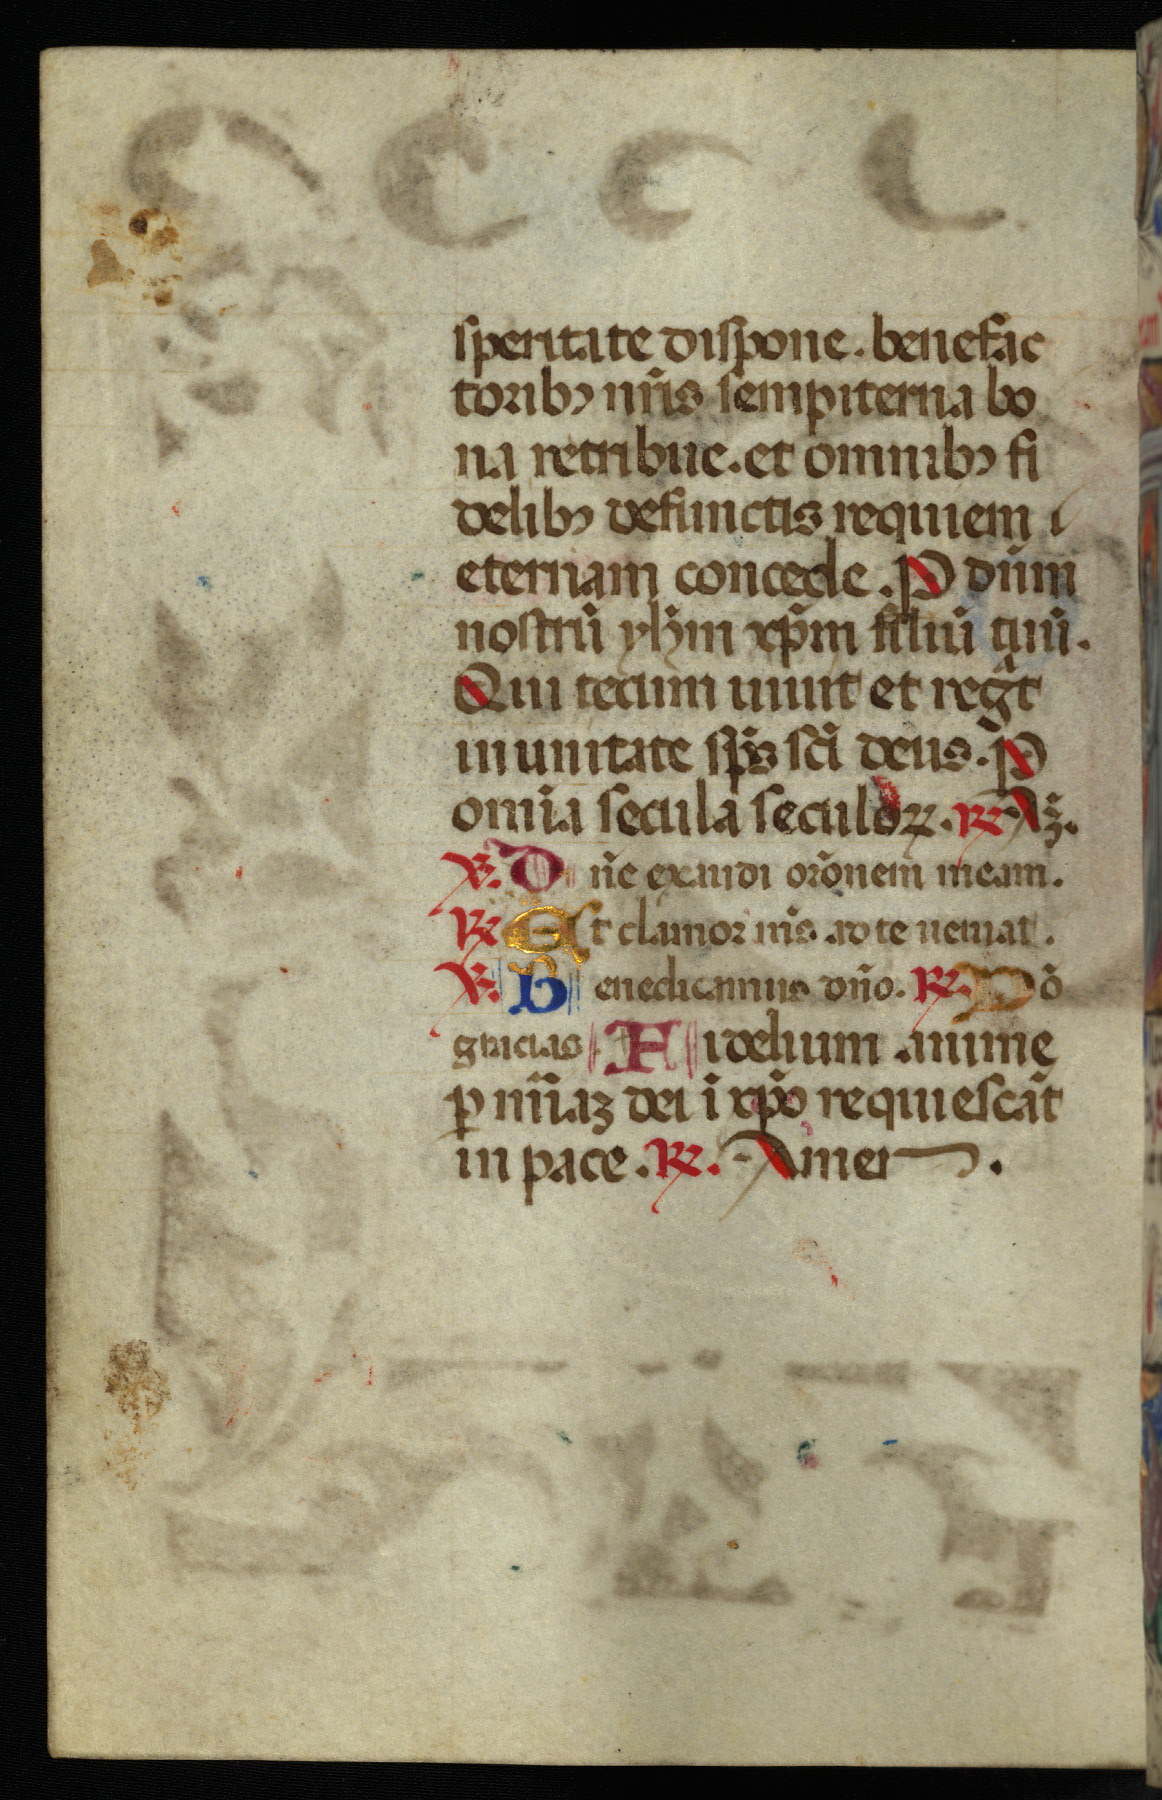 speritate dispone. benefac
toribꝫ nr̄is sempiterna bo
na retribue. et omnibꝫ fi
delibꝫ defunctis requiem i
eternam concede. P dūm
nostrū yhm̄ xp̄m filiū tuū.
Qui tecum uiuit et regͣt
in unitate sp̄s sc̄i deus. P̄
om̄ia secula seculoꝝ. ℟ Aꝫ.
℣. D n̄e exaudi or̄onem meam.
℟ Et clamor m̄s ad te ueniat.
℣. B enedicamus dn̄o. ℟. D ō
gracias. F idelium anime
ꝑ mīaꝫ dei ī xp̄o requiescāt
in pace. ℟. Amen.